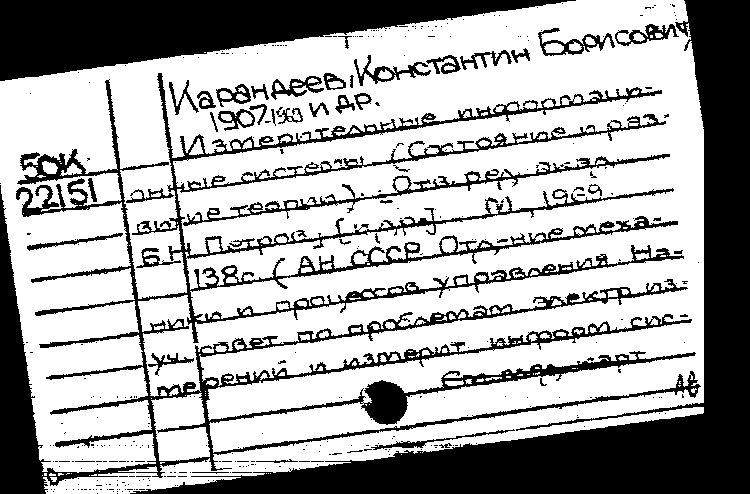 Карандеев, Константин Борисович,
1907-1969 и др.
Измерительные информаци-
50К
22151
онные системы (Состояние и раз-
витие теории). - Отв. ред. акад.
Б.Н. Петров, [и др.] М., 1969.
138с. (АН СССР. Отд-ние меха-
ники и процессов управления. На-
уч. совет по проблемам электр из-
мерений и измерит. информ. сис-